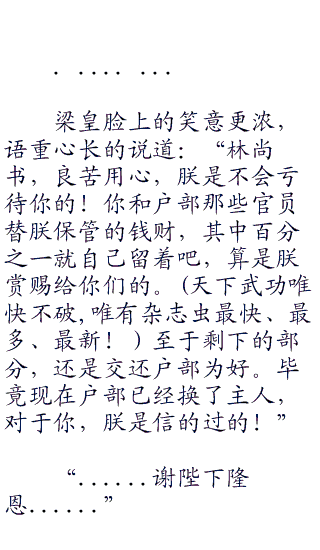 . .... ...
梁皇脸上的笑意更浓，
语重心长的说道：“林尚
书，良苦用心，朕是不会亏
待你的！你和户部那些官员
替朕保管的钱财，其中百分
之一就自己留着吧，算是朕
赏赐给你们的。(天下武功唯
快不破,唯有杂志虫最快、最
多、最新！)至于剩下的部
分，还是交还户部为好。毕
竟现在户部已经换了主人，
对于你，朕是信的过的！”
“......谢陛下隆
恩......”